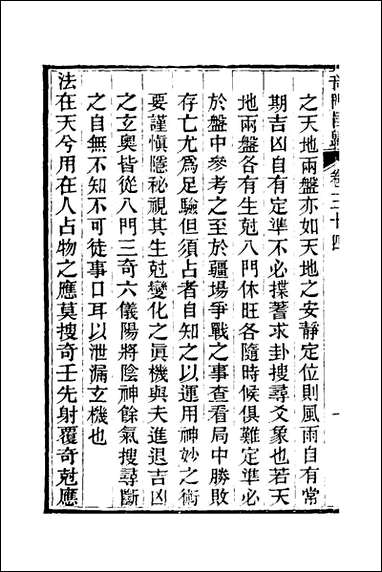 奇門
卷二十四
之天地兩盤亦如天地之安靜定位則風雨自有常
期吉凶自有定準不必揲蓍求卦搜尋爻象也若天
地兩盤各有生尅八門休旺各隨時候俱難定準必
於盤中參考之至於疆場爭戰之事查看局中勝敗
存亡尤爲足驗但須占者自知之以運用神妙之術
要謹愼隱祕視其生尅變化之眞機與夫進退吉凶
之玄奧皆從八門三奇六儀陽將陰神餘氣搜尋斷
之自無不知不可徒事口耳以泄漏玄機也
法在天兮用在人占物之應莫搜奇壬先射覆奇尅應